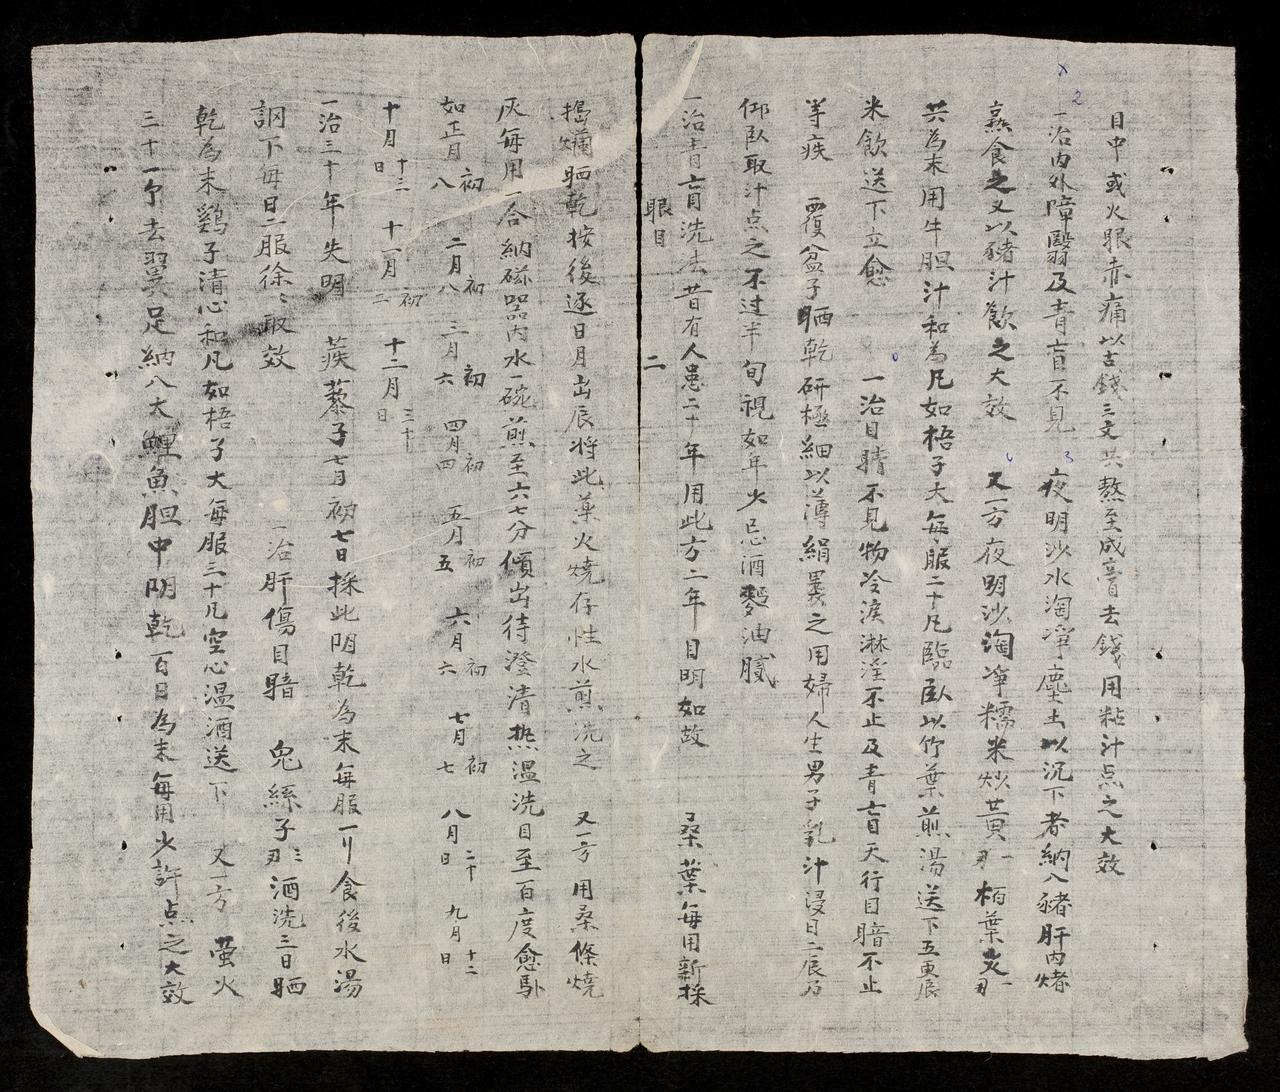 目中或火眼赤痛以古錢三文共熬至成膏去錢用粘汁点之大效
一治内外障翳及青盲不見 夜明沙水淘淨塵土以沉下者納入豬肝内煑
熟食之又以豬汁飲之大效 又一方夜明沙淘淨糯米炒黄一刄栢葉炙一刄
共為末用牛胆汁和為凡如梧子大每服二十凡臨臥以竹葉煎湯送下五更辰
米飲送下立愈 一治目睛不見物冷淚淋淫不止及青盲天行目暗不止
等疾 覆盆子晒乾研極細以薄絹裹之用婦人生男子乳汁浸日二辰乃
仰臥取汁点之不过半旬視如年少忌酒麥面油膩
一治青盲洗法昔有人患二十年用此方二年目明如故 桑葉每用新採
眼目 二
搗爛晒乾按後逐日月出辰将此藥火燒存性水煎洗之 又一方用桑條燒
灰每用一合納磁器内水一碗煎至六七分傾出待澄清热温洗目至百度愈馿
如正月初八 二月初八 三月初六 四月初四 五月初五 六月初六 七月初七 八月二十日 九月十二日
十月十三日 十一月初二 十二月三十日
一治三十年失明 蒺藜子七月初七日採此阴乾為末每服一刂食後水湯
調下每日二服徐〻取效 一治肝傷目暗 兔絲子三刄酒洗三日晒
乾為末鷄子清心和凡如梧子大每服三十凡空心温酒送下 又一方 萤火
三十一个去翼足納入大鯉魚胆中阴乾百日為末每用少許点之大效
2
3